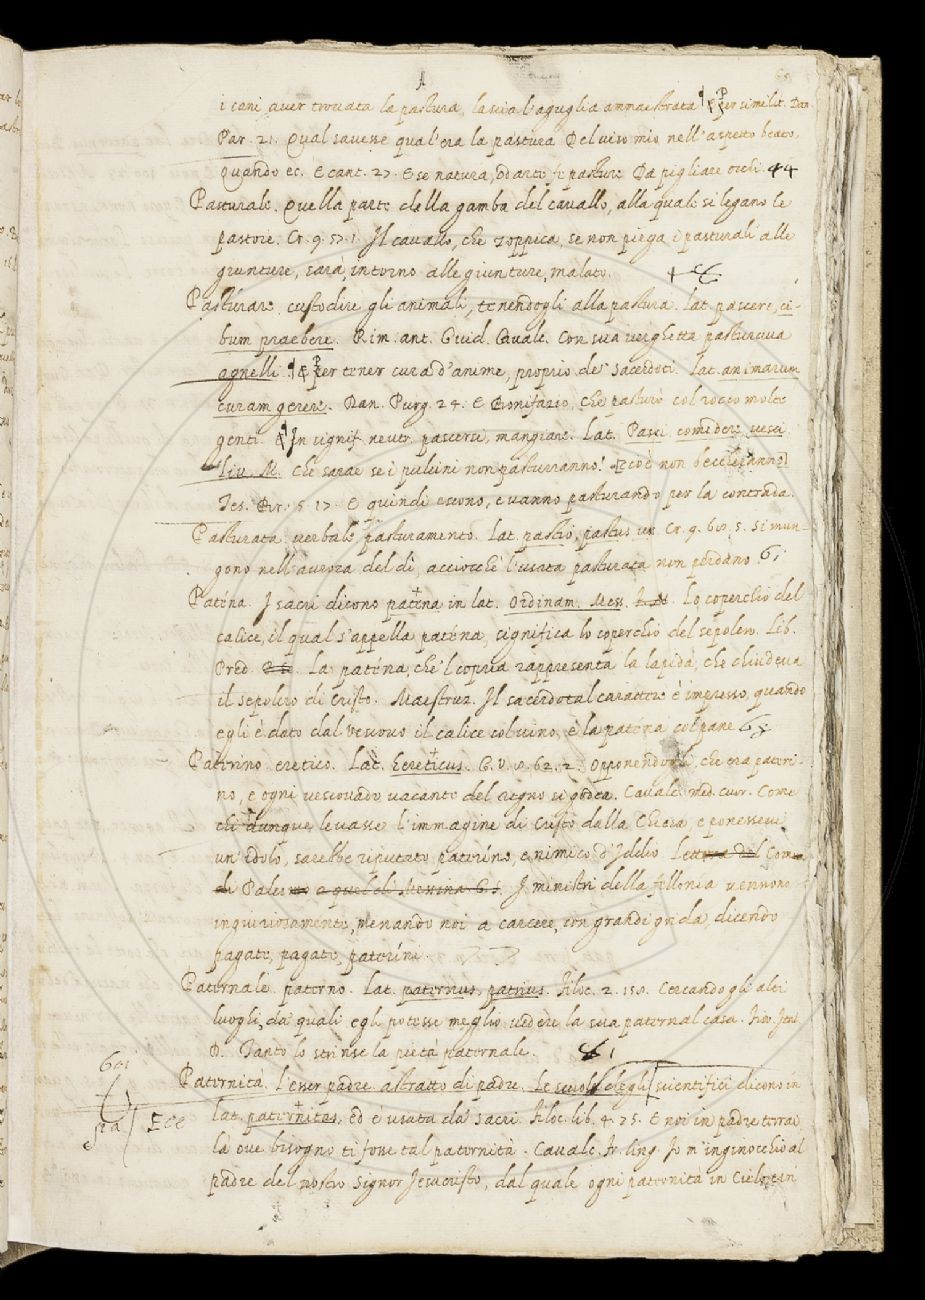 i cani aver trovata la pastura, lascia l'aguglia ammaestrata ¶ & Per similit. Dan.
Par. 21. Qual savesse qual'era la pastura Del viso mio nell'aspetto beato,
Quando ec. E cant. 27. E se natura, od arte fe pasture Da pigliare occhi. 44
Pasturale. Quella parte della gamba del cavallo, alla quale si legano le
pastoie. Cr. 9. 57. 1. Il cavallo, che zoppica, se non piega i pasturali alle
giunture, sarà, intorno alle giunture, malato.
Pasturare custodire gli animali, tenendogli alla pastura. lat. pascere, ci-
bum praebere. Rim. ant. Guid. Cavalc. Con sua verghetta pasturava
agnelli. ¶ & Per tener cura d'anime, proprio de' Sacerdoti. lat. animarum
curam gerere. Dan. Purg. 24. E Bonifazio, che pasturò col rocco molte
genti. & In signif. neutr. pascersi, mangiare. Lat. Pasci comedere vesci
Liv. M. Che sarae se i pulcini non pasturranno? cioè non beccheranno
Tes. Br. 5. 17. E quindi escono, e vanno pasturando per la contrada.
Pasturata verbale, pasturamento. lat. pastio, pastus us Cr. 9. 60. 5. Si mun-
gono nell'aurora del dì, acciocchè l'usata pasturata non perdano. 6;
Paténa. I sacri dicono patena in lat. Ordinam. Mess. Lo coperchio del
calice, il qual s'appella paténa, significa lo coperchio del sepolcro. Lib.
Pred. La paténa, che 'l copria rappresenta la lapida, che chiudeva
il sepolcro di Cristo. Maestruz. Il sacerdotal carattere è impresso, quando
egli è dato dal vescovo il calice col vino, e la paténa col pane
Paterino eretico. Lat. hereticus. G. V. 2. 62. 2. Opponendogli, che era pateri-
no, e ogni vescovado vacante del regno si godea. Cavalc. med. cuor. Come
chi dunque levasse l'immagine di Cristo dalla Chiesa e ponessevi
un'idolo, sarebbe riputato paterino, e nimico d'Iddio Lettera del Com.
di Palermo a quel di Messina G. S. I ministri della fellonia vennono
ingiuriosamente, menando noi a carcere, con grandi grida, dicendo
pagate, pagate, paterini.
Paternale. paterno. Lat. paternus, patrius. Filoc. 2. 150. Cercando gli alti
luoghi, da' quali egli potesse meglio vedere la sua paternal casa. Fior. Ital.
D. Tanto lo strinse la pietà paternale.
Paternità. l'esser padre astratto di padre. Le scuole degli scientifici dicono in
lat. paternitas, ed è usata da' sacri. Filoc. lib. 4. 25. E noi in padre terrai
là ove bisogno ti fosse tal paternità. Cavalc. Fr. ling. Io m'inginocchio al
padre del nostro Signor Jesucristo, dal quale ogni paternità in Cielo, e in